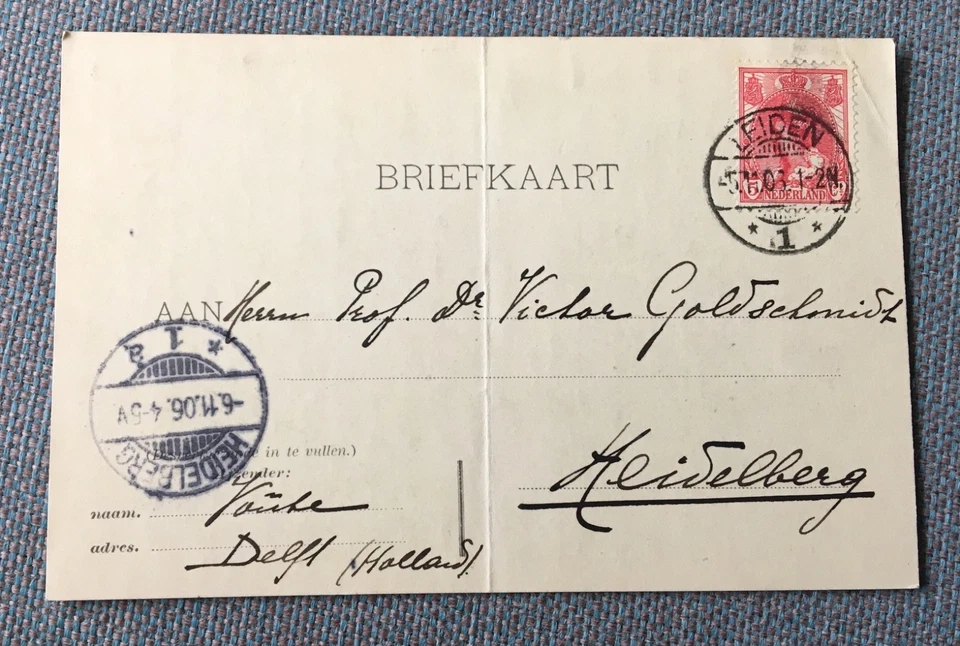 BRIEFKAART
LEIDEN
5.11.06.1-2N.
1
5 C
NEDERLAND
AAN Herrn Prof. Dr. Victor Goldschmidt
Heidelberg
HEIDELBERG
-6.11.06.4-5V
1
a
in te vullen.)
naam. Voûte
adres. Delft (Holland).